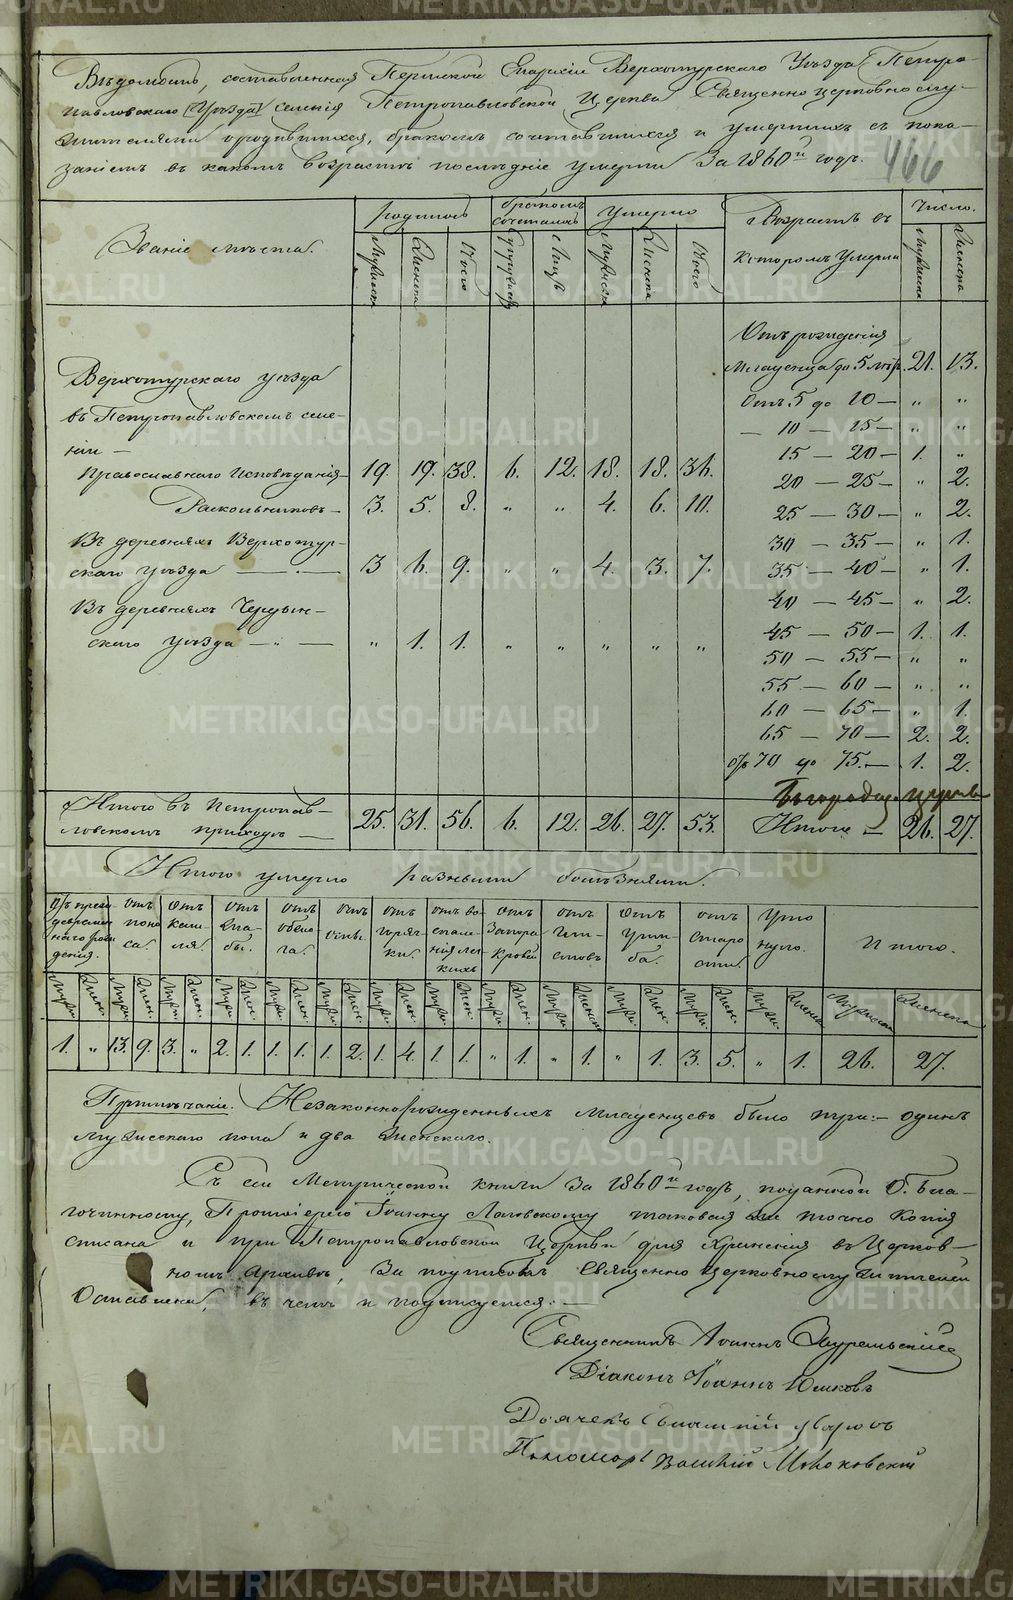 Вѣдомость, составленная Пермской Епархіи Верхотурскаго Уѣзда Петро
павловскаго [Уѣзда] селенія Петропавловской Церкви Священно церковнослу-
жителями о родившихся, бракомъ сочетавшихся и умершихъ съ пока-
заніемъ въ какомъ возрастѣ послѣдніе умерли За 1860й годъ.
466
Званіе мѣста.
родилось
бракомъ сочеталось
Умерло
Возрастъ въ которомъ Умерли
Число.
Мужеска Женска Всего Супружествъ Лицъ Мужеска Женска Всего Мужеска Женска
Отъ рожденія
Младенца до 5 лѣтъ. 21. 13.
Отъ 5 до 10 — „ „
— 10 — 15 — „ „
15 — 20 — 1. „
20 — 25 — „ 2.
25 — 30 — „ 2.
30 — 35 — „ 1.
35 — 40 — „ 1.
40 — 45 — „ 2.
45 — 50 — 1. 1.
50 — 55 — „ „
55 — 60 — „ „
60 — 65 — „ 1.
65 — 70 — 2. 2.
отъ 70 до 75. — 1. 2.
Верхотурскаго уѣзда
въ Петропавловскомъ селе-
ніи —
Православнаго Исповѣданія — 19. 19. 38. 6. 12. 18. 18. 36.
Раскольниковъ — 3. 5. 8. „ „ 4. 6. 10.
Въ деревняхъ Верхотур-
скаго уѣзда — 3 6. 9. „ „ 4. 3. 7.
Въ деревняхъ Чердын-
скаго уѣзда — „ — „ 1. 1. „ „ „ „ „
Итого въ Петропав-
ловскомъ приходѣ — 25. 31. 56. 6. 12. 26. 27. 53. Итого — 26. 27.
Итого умерло разными болѣзнями.
Отъ преждевременнаго рожденія.
отъ поноса.
Отъ кашля.
отъ слабы.
отъ
отъ оспы.
отъ горячки.
отъ воспаленія легкихъ
отъ запора кровей
отъ
Отъ
отъ старости.
Утонуло.
Итого.
Муж. Жен. Муж. Жен. Муж. Жен. Муж. Жен. Муж. Жен. Муж. Жен. Муж. Жен. Муж. Жен. Муж. Жен. Муж. Женск. Муж. Жен. Муж. Жен. Муж. Женск. Мужеска Женска
1. „ 13. 9. 3. „ 2. 1. 1. 1. 1. 2. 1. 4. 1. 1. „ 1. „ 1. „ 1. 3. 5. „ 1. 26. 27.
Примѣчаніе. Незаконнорожденныхъ младенцевъ было три: — одинъ
мужескаго пола и два женскаго.
Съ сей Метрической книги За 1860й годъ, поданной О. Бла-
гочинному, Протоіерею Іоанну таковая же точно копія
списана и при Петропавловской Церкви для храненія въ Церков-
номъ архивѣ, за подписомъ Священно церковнослужителей
Оставлена, въ чемъ и подписуемся: —
Священникъ Іоаннъ Зауральскій
Діаконъ Іоаннъ Юшковъ
Дьячекъ
Пономарь Василій
METRIKI.GASO-URAL.RU